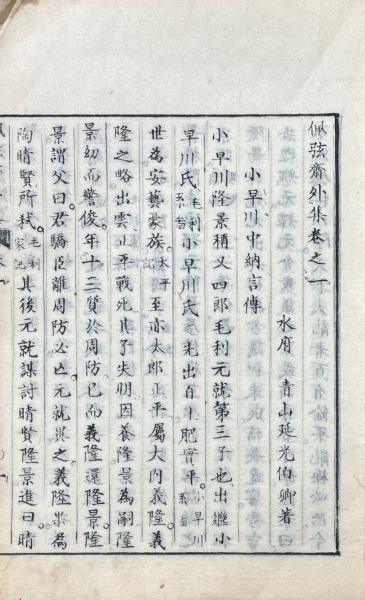 佩弦齋外集卷之一
水府 青山延光伯卿著
小早川中納言傳
小早川隆景稱又四郎毛利元就第三子也出繼小
早川氏毛利系畧小早川氏先出自土肥實平小早川系畧
世為安藝豪族太平記至亦太郎正平屬大内義隆義
隆之略出雲正平戰死其子失明因養隆景為嗣隆
景幼而警俊年十三質於周防已而義隆還隆景隆
景謂父曰君驕臣離周防必亡元就異之義隆果為
陶晴賢所弒毛利家記其後元就謀討晴賢隆景進曰晴